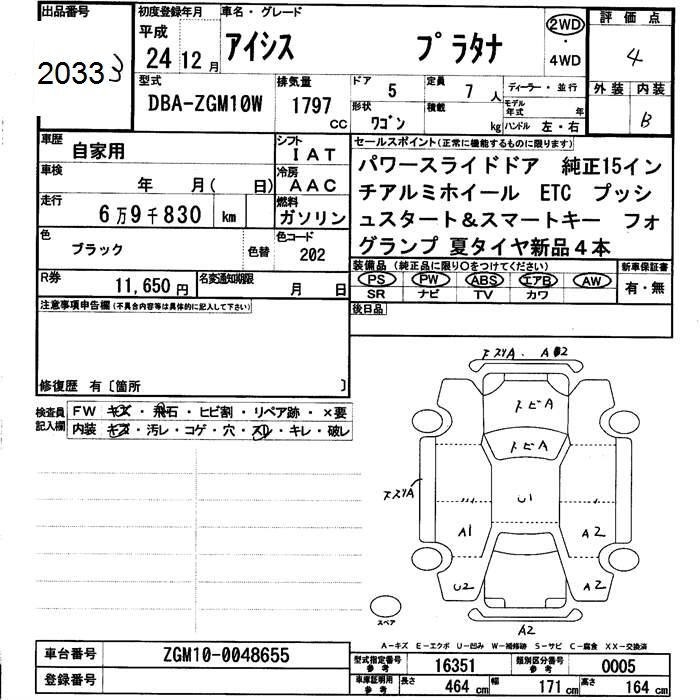 出品番号
20333
初度登録年月
平成
24年12月
車名・グレード
アイシス プラタナ
2WD
・
4WD
評価点
4
外装 内装
B
型式
DBA-ZGM10W
排気量
1797
CC
ドア
5
定員
7人
形状
ワゴン
積載
kg
ディーラー・並行
モデル年式 年
ハンドル 左・右
車歴
自家用
シフト
IAT
車検
年 月(日)
冷房
AAC
走行
6万9千830 km
燃料
ガソリン
色
ブラック
色替
色コード
202
R券
11,650円
名変通知期限
月 日
セールスポイント(正常に機能するものに限ります)
パワースライドドア 純正15イン
チアルミホイール ETC プッシ
ュスタート&スマートキー フォ
グランプ 夏タイヤ新品4本
装備品(純正品に限り○をつけてください)
PS PW ABS エアB AW
SR ナビ TV カワ
新車保証書
有・無
後日品
注意事項申告欄(不具合内容等は具体的に記入して下さい)
修復歴 有〔箇所 〕
検査員
記入欄
FW キズ・飛石・ヒビ割・リペア跡・×要
内装 キズ・汚レ・コゲ・穴・スレ・キレ・破レ
スズリA・A
2
トビA
トビA
スズリA
U1
A1
A2
U2
A2
A2
スペア
A-キズ E-エクボ U-凹み W-補修跡 S-サビ C-腐食 XX-交換済
車台番号
ZGM10-0048655
登録番号
型式指定番号
参考
16351
類別区分番号
参考
0005
車庫証明用
参考
長さ
464 cm
幅
171 cm
高さ
164 cm